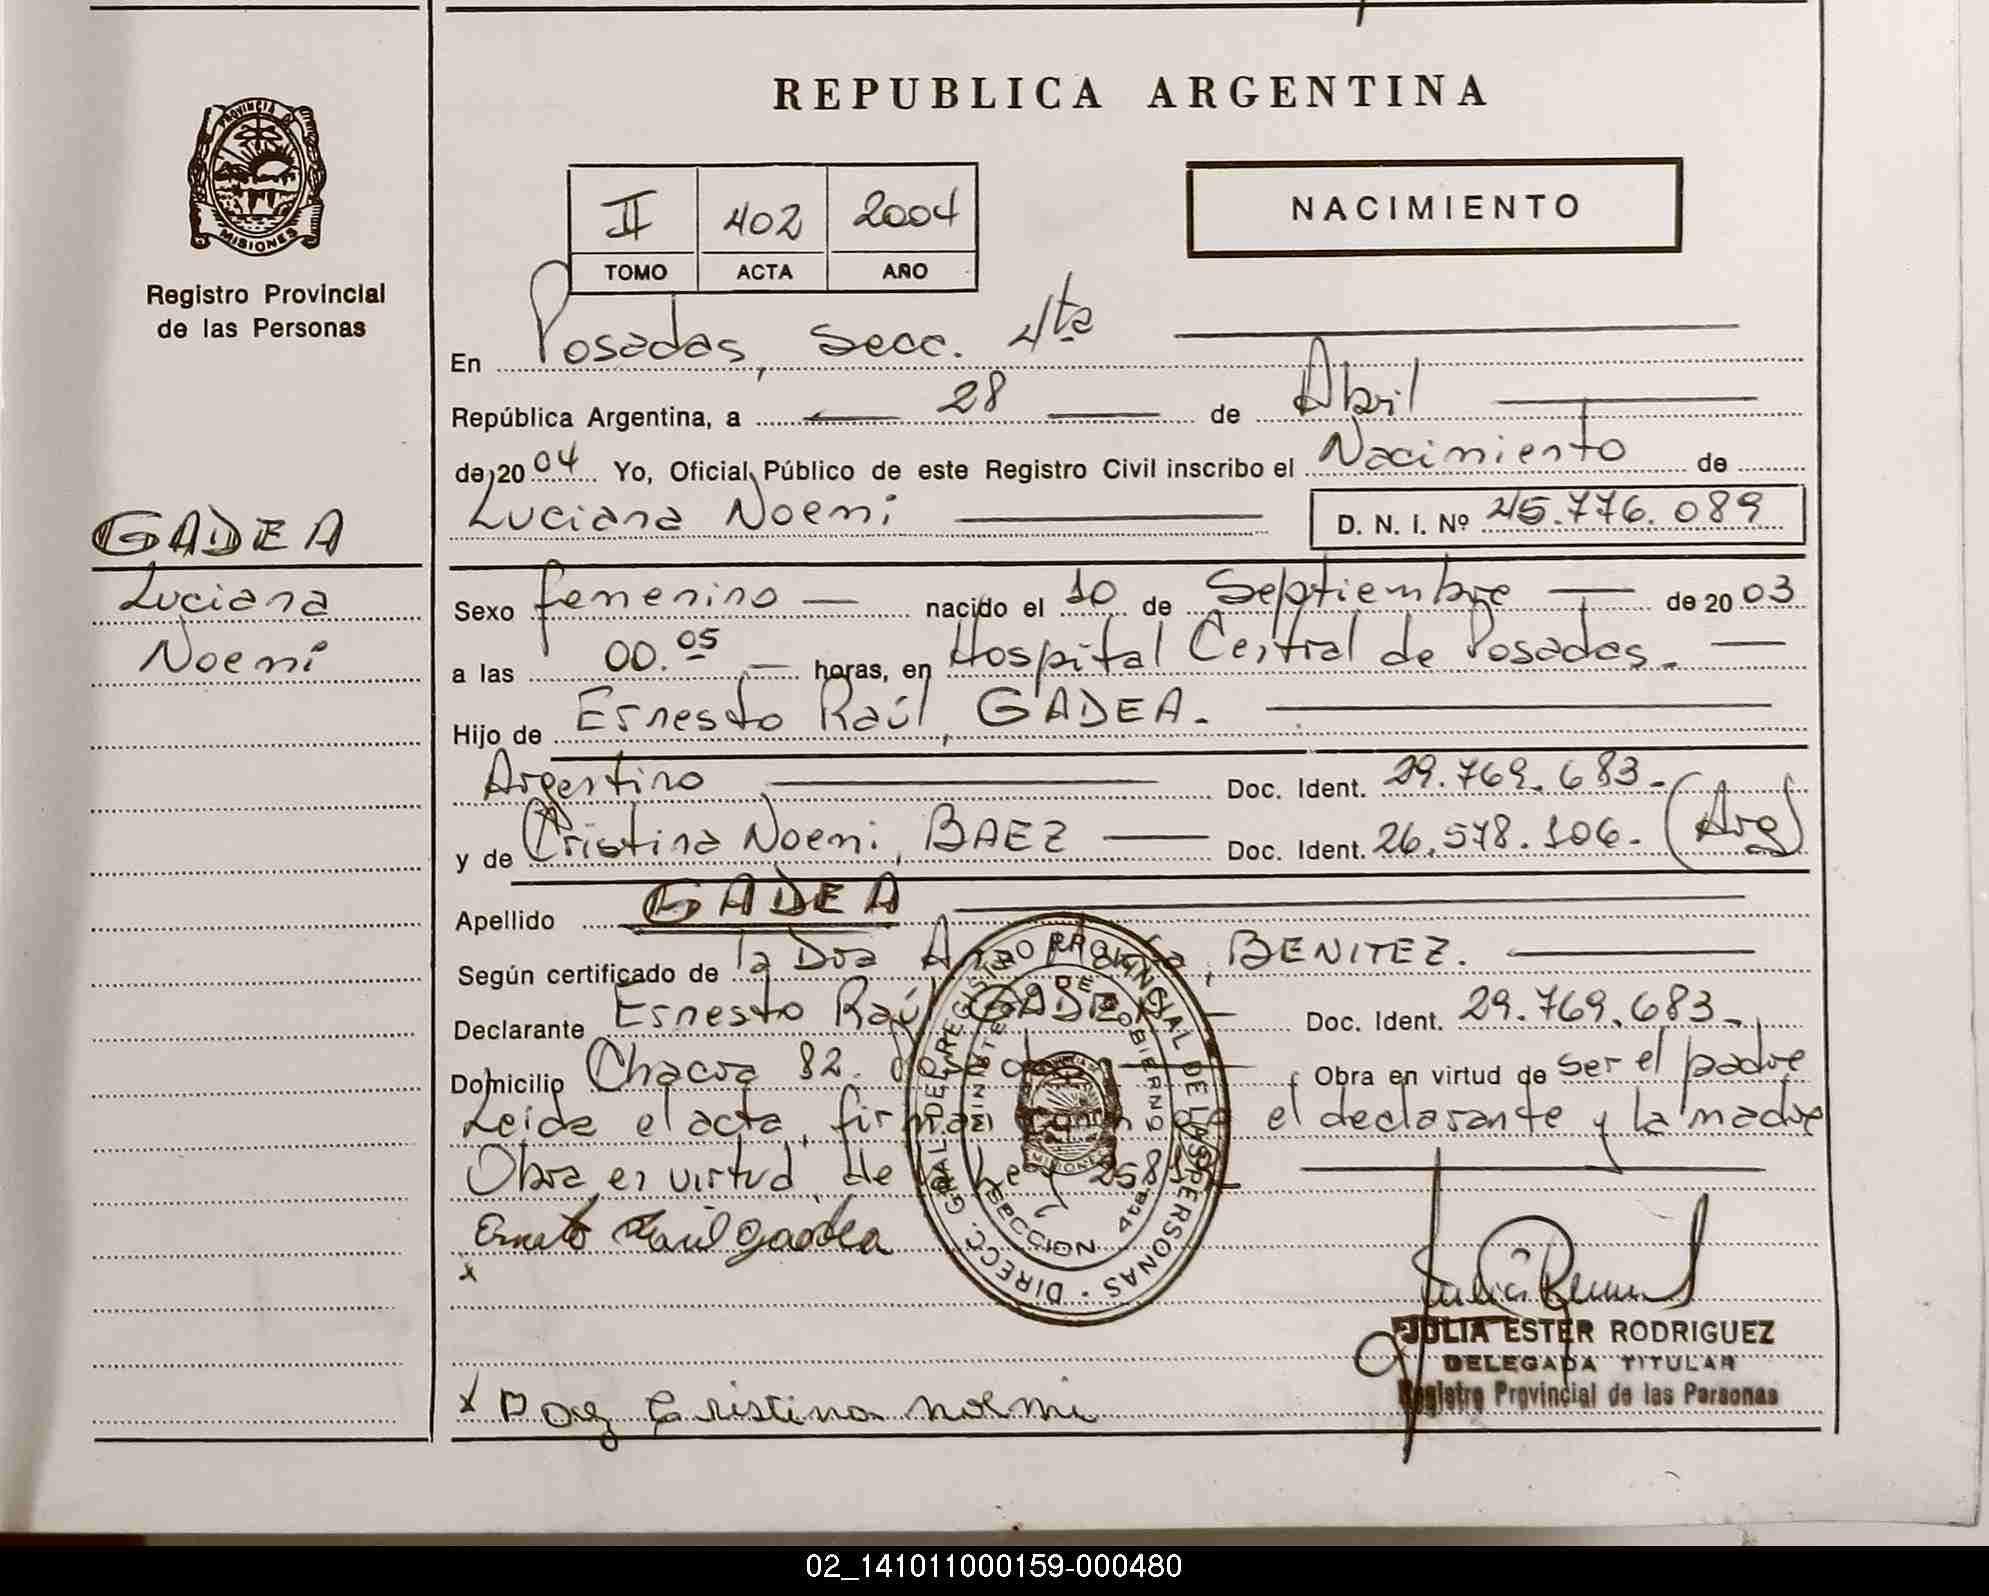 REPUBLICA ARGENTINA
PROVINCIA DE
MISIONES
Registro Provincial
de las Personas
GADEA
Luciana
Noemi
II 402 2004
TOMO ACTA AÑO
NACIMIENTO
En Posadas, Secc. 4ta
República Argentina, a 28 de Abril
de 2004 Yo, Oficial Público de este Registro Civil inscribo el Nacimiento de
Luciana Noemi D. N. I. Nº 45.776.089
Sexo femenino nacido el 10 de Septiembre de 2003
a las 00.05 horas, en Hospital Central de Posadas.
Hijo de Ernesto Raúl, GADEA.
Argentino Doc. Ident. 29.769.683.-
y de Cristina Noemi, BAEZ Doc. Ident. 26.578.106.- (Arg)
Apellido GADEA
Según certificado de la Dra BENITEZ.
Declarante Ernesto Raúl GADEA Doc. Ident. 29.769.683.-
Domicilio Chacra 82. Posadas Obra en virtud de ser el padre
Leida el acta, firman el declarante y la madre
Obra en virtud de Ley
DIRECC. GRAL. DEL REGISTRO PROVINCIAL DE LAS PERSONAS
MINISTERIO DE GOBIERNO
MISIONES
SECCION 4ta
Ernesto Raul Gadea
x
JULIA ESTER RODRIGUEZ
DELEGADA TITULAR
Registro Provincial de las Personas
x Baez Cristina Noemi
02_141011000159-000480